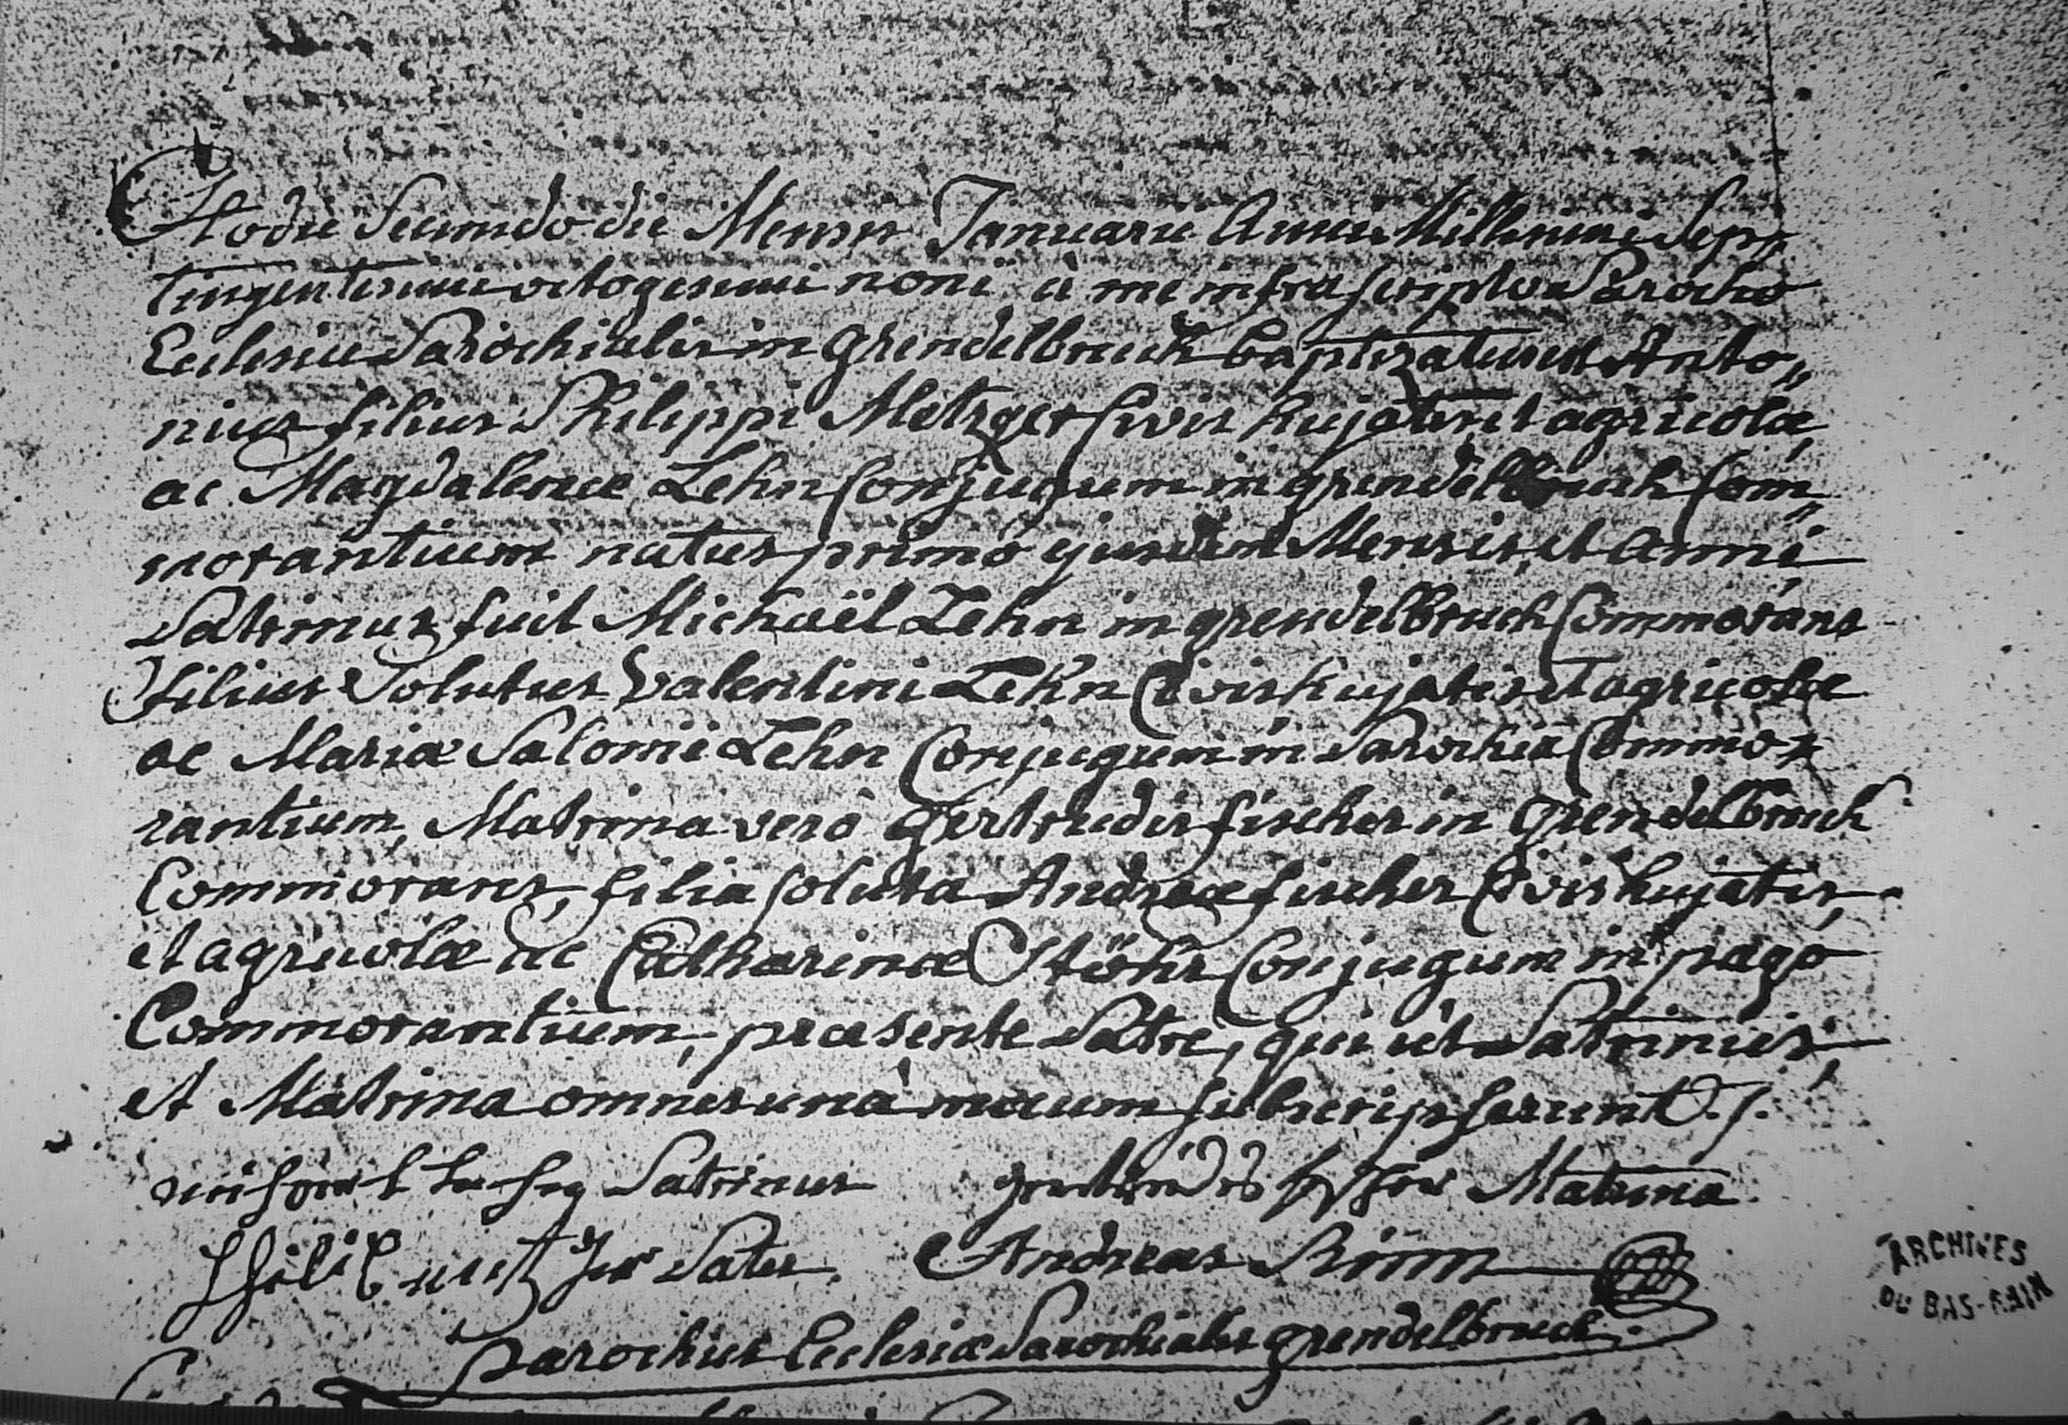 Hodie Secundo die Mensis Januarii Anni Millesimi Sep„
tingentesimi octogesimi noni à me infrascripto Parocho
Ecclesiæ Parochialis in grendelbruch baptizatus est Anto„
nius filius Philippi Metzger Civis hujatis et agricolæ,
ac Magdalenæ Lehn Conjugum in grendelbruch Com„
morantium natus primo ejusdem Mensis, et anni,
Patrinus fuit Michaël Lehn in grendelbruch Commorans
filius Solutus Valentini Lehn Civis hujatis et agricolæ
ac Mariæ Salome Lehn Conjugum in Parochia Commo„
rantium, Matrina verò gertrudis fischer in grendelbruch
Commorans, filia soluta Andreæ fischer Civis hujatis,
et agricolæ ac Catharinæ Stöhr Conjugum in pago
Commorantium, præsente Patre, qui ut Patrinus,
et Matrina omnes unà mecum subscripserunt
Patrinus Matrina
Pater Andreas
parochus Ecclesiæ Parochialis grendelbruch.
ARCHIVES
DU BAS-RHIN